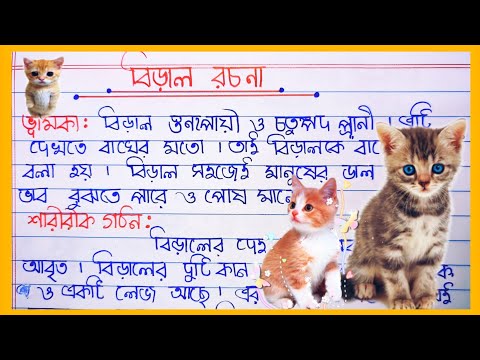 বিড়াল রচনা
ভূমিকা: বিড়াল স্তন্যপায়ী ও চতুষ্পদ প্রানী । এটি
দেখতে বাঘের মতো । তাই বিড়ালকে বাঘে
বলা হয় । বিড়াল সহজেই মানুষের ভাল
ভাব বুঝতে পারে ও পোষ মানে
শারীরীক গঠন:
বিড়ালের দেহ
আবৃত । বিড়ালের দুটি কান
ও একটি লেজ আছে । এর